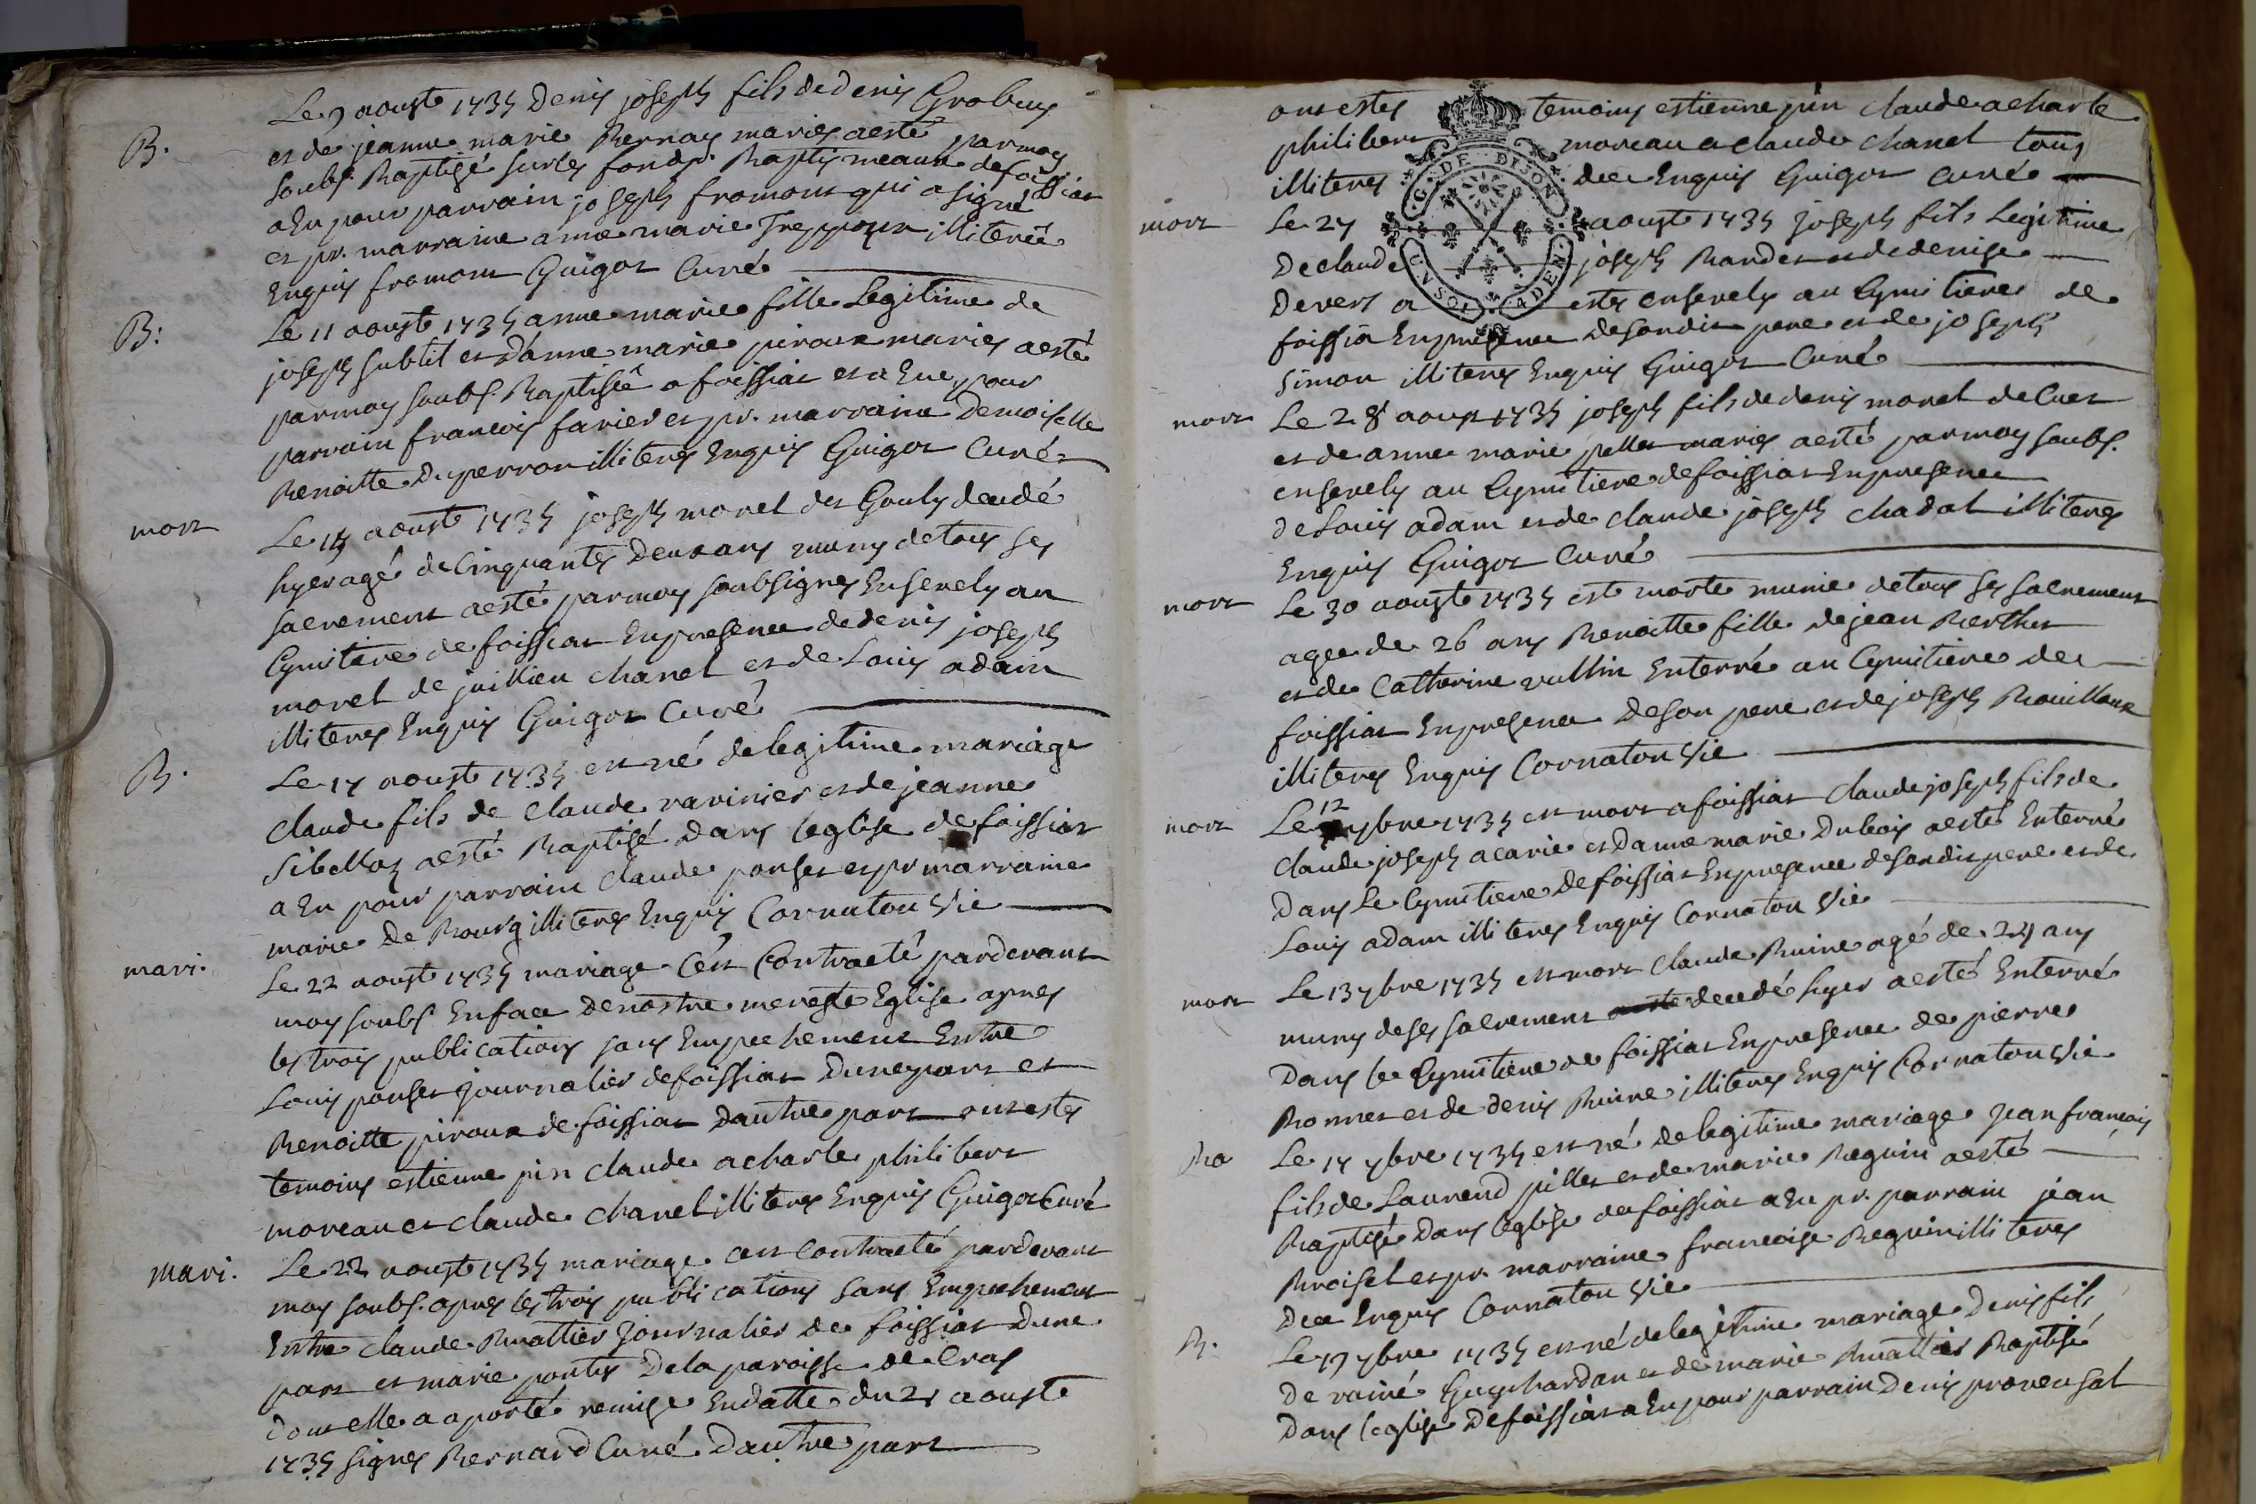 B.
Le 9 aouste 1735 Denis joseph fils de denis Grobuis
et de jeanne marie Bernay maries aesté parmoy
soubs. Baptisé surles fonds. Baptismeaux de foissiat
a Eu pour parrain joseph fromont qui a signé
et pr. marraine anne marie illiterée
Enquis fromont Guigot Curé
B:
Le 11 aouste 1735 anne marie fille Legitime de
joseph subtil et d'anne marie piroux maries aesté
parmoy soubs. Baptisée a foissiat et a Eue pour
parrain francois farier et pr. marraine Demoiselle
Benoitte Duperron illiteres Enquis Guigot Curé
mort
Le 14 aouste 1735 joseph morel des Gouly decedé
hyer agé de Cinquantes Deux ans muny de tous ses
sacrement aesté parmoy soubsignes Ensevely au
Cymitiere de foissiat Enpresence de denis joseph
morel de juillien chanel et de Louis adam
illiteres Enquis Guigot Curé
B.
Le 17 aouste 1735 est né de legitime mariage
Claude fils de Claude ravinier et de jeanne
Sibelloz aesté Baptisé Dans leglise de foissiat
a Eu pour parrain Claude ponset et pr marraine
marie De Bourg illiteres Enquis Cornaton Vic
mari.
Le 22 aouste 1735 mariage C'est Contracté pardevant
moy soubs. Enface denostre mereste Eglise apres
les trois publications sans Empechement Entre
Louis ponset journalier de foissiat Dunepart et
Benoitte piroux de foissiat Dautre part ont estes
temoins estienne pin claude acharle philibert
moreau et claude chanel illiteres Enquis Guigot Curé
mari.
Le 22 aouste 1735 mariage cest contracté pardevant
moy soubs. apres les trois publications sans Empechement
Entre claude Buattier journalier de foissiat Dune
part et marie pontus Dela paroisse de Cras
dont elle a aporté remise Endatte du 21 aouste
1735 signes Bernard Curé Dautre part
ont estes temoins estienne pin claude acharle
philibert moreau a claude chanel tous
illiteres de Enquis Guigot Curé
G. DE DIJON
mort
Le 27 aouste 1735 joseph fils Legitime
De claude joseph Bandet et de denise
Devert a estes ensevely au Cymitiere de
foissia Enpresence desondit pere et de joseph
Simon illiteres Enquis Guigot Curé
mort
Le 28 aoust 1735 joseph fils de denis morel de Cuet
et de anne marie pellet maries aesté parmoy soubs.
ensevely au Cymitiere de foissiat Enpresence
de Louis adam et de claude joseph chadal illiteres
Enquis Guigot Curé
mort
Le 30 aouste 1735 est morte munie de tous ses sacrement
agee de 26 ans Benoitte fille de jean Berthet
et de Catherine vullin Enterré au Cymitiere de
foissiat Enpresence Deson pere et de joseph Bouilloux
illiteres Enquis Cornaton Vic
mort
Le 12 7bre 1735 est mort a foissiat claude joseph fils de
claude joseph acarie et Danne marie Dubois aesté Enterré
Dans Le Cymitiere de foissiat Enpresence desondit pere et de
Louis adam illiteres Enquis Cornaton Vic
mort
Le 13 7bre 1735 est mort claude Buire agé de 24 ans
muny de ses sacrement decedé hyer aesté Enterré
Dans le Cymitiere de foissiat Enpresence de pierre
Bonnet et de denis Buire illiteres Enquis Cornaton Vic
Ba
Le 17 7bre 1735 est né de legitime mariage jean francois
fils de Laurend pillet et de marie Beguin aesté
Baptisé Dans leglise de foissiat a Eu pr. parrain jean
Broisel et pr. marraine francoise Beguin illiteres
De Enquis Cornaton Vic
B.
Le 19 7bre 1735 est né de legitime mariage Denis fils
De rainé Guychardan et de marie Buattier Baptisé
Dans leglise De foissiat a Eu pour parrain Denis provensal